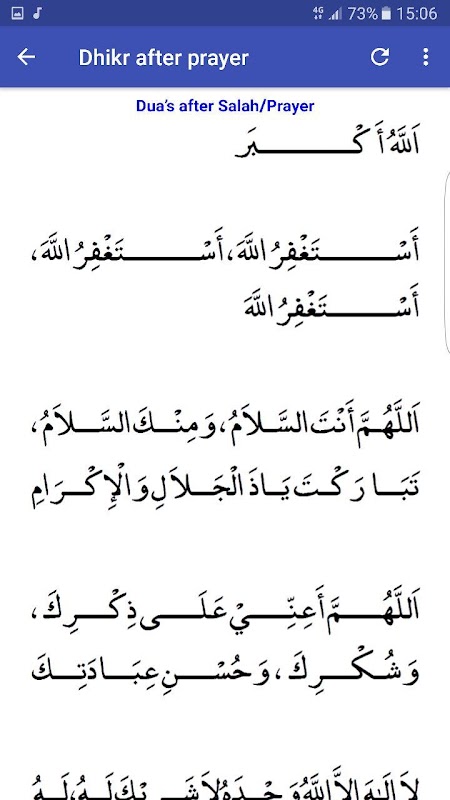 4G 73% 15:06
Dhikr after prayer
Dua's after Salah/Prayer
اَللَّهُ أَكْبَرَ
أَسْتَغْفِرُ اللَّهَ، أَسْتَغْفِرُ اللَّهَ،
أَسْتَغْفِرُ اللَّهَ
اَللَّهُمَّ أَنْتَ السَّلاَمُ، وَمِنْكَ السَّلاَمُ،
تَبَارَكْتَ يَاذَ الْجَلاَلِ وَالْإِكْرَامِ
اَللَّهُمَّ أَعِنِّيْ عَلَى ذِكْرِكَ،
وَشُكْرِكَ، وَحُسْنِ عِبَادَتِكَ
لاَ إِلَهَ إِلاَّ اللَّهُ وَحْدَهُ لاَ شَرِيْكَ لَهُ، لَهُ